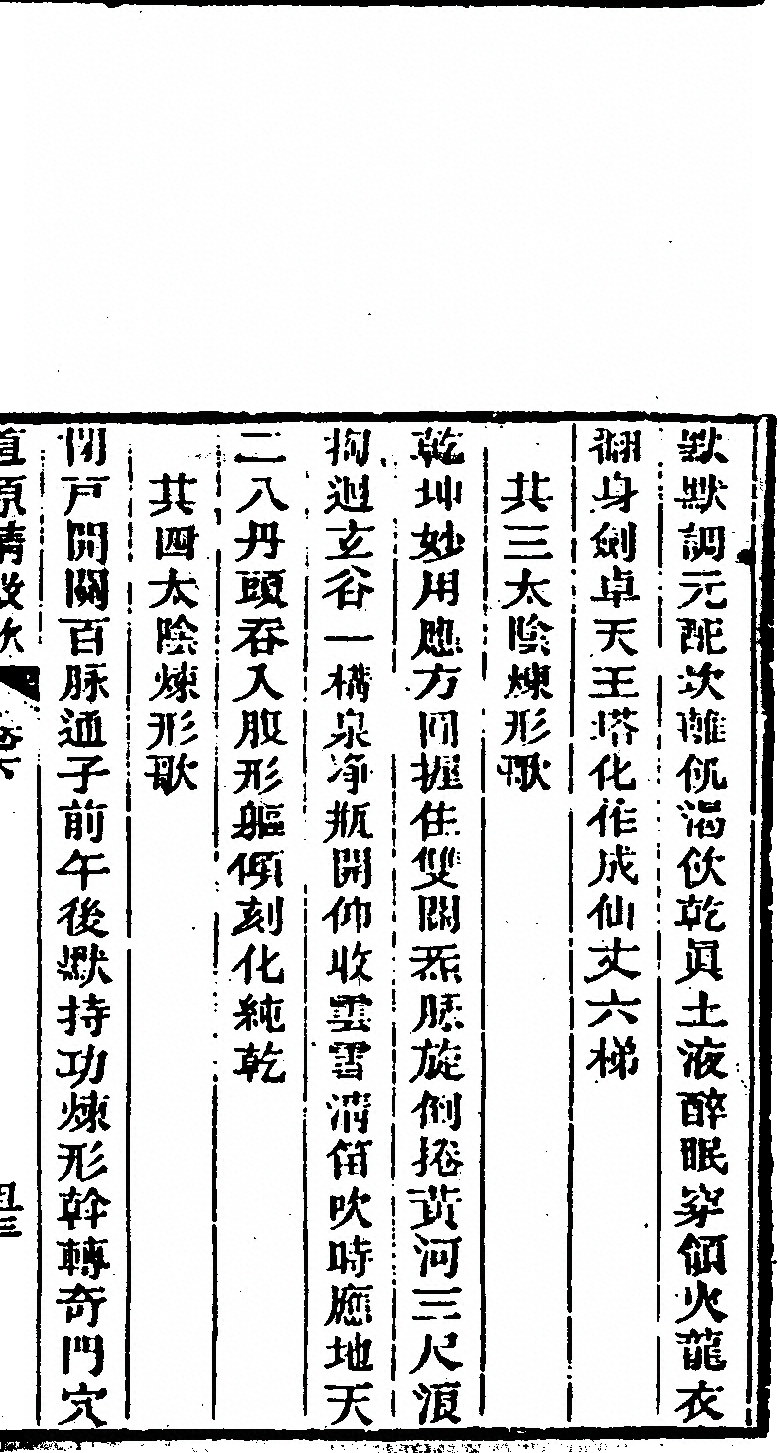 默默調元配坎離飢渴飲乾眞土液醉眠穿領火龍衣
翻身劍卓天王塔化作成仙丈六梯
其三太陰煉形歌
乾坤妙用應方圓握住雙關炁脉旋倒捲黃河三尺浪
掏迴玄谷一構泉净瓶開仰收雲雪满笛吹時應地天
二八丹頭吞入腹形軀傾刻化純乾
其四太陰煉形歌
閉戸開關百脉通子前午後默持功煉形幹轉奇門穴
道原精
卷下